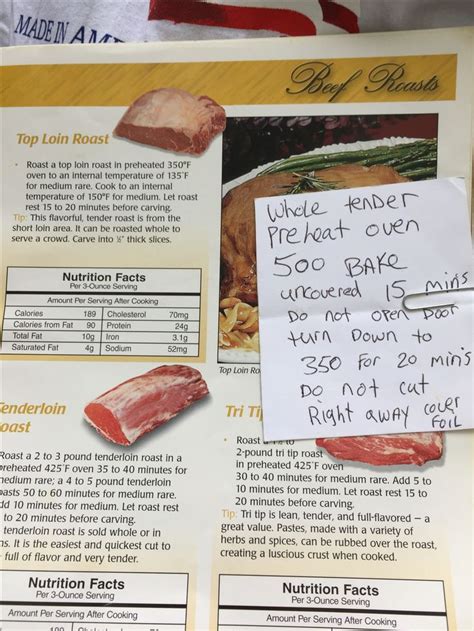 MADE IN AM
Beef Roasts
Top Loin Roast
• Roast a top loin roast in preheated 350°F
oven to an internal temperature of 135°F
for medium rare. Cook to an internal
temperature of 150°F for medium. Let roast
rest 15 to 20 minutes before carving.
Tip: This flavorful, tender roast is from the
short loin area. It can be roasted whole to
serve a crowd. Carve into ½" thick slices.
Nutrition Facts
Per 3-Ounce Serving
Amount Per Serving After Cooking
Calories 189 Cholesterol 70mg
Calories from Fat 90 Protein 24g
Total Fat 10g Iron 3.1g
Saturated Fat 4g Sodium 52mg
Whole tender
Preheat oven
500 BAKE
uncovered 15 mins
Do not open Door
turn Down to
350 For 20 min's
Do not cut
Right away cover
FOIL
Top Loin Ro
enderloin
oast
Roast a 2 to 3 pound tenderloin roast in a
preheated 425°F oven 35 to 40 minutes for
medium rare; a 4 to 5 pound tenderloin
oasts 50 to 60 minutes for medium rare.
dd 10 minutes for medium. Let roast rest
to 20 minutes before carving.
tenderloin roast is sold whole or in
ns. It is the easiest and quickest cut to
full of flavor and very tender.
Nutrition Facts
Per 3-Ounce Serving
Amount Per Serving After Cooking
Tri Ti
• Roast a 1½ to
2-pound tri tip roast
in preheated 425°F oven
30 to 40 minutes for medium rare. Add 5 to
10 minutes for medium. Let roast rest 15 to
20 minutes before carving.
Tip: Tri tip is lean, tender, and full-flavored – a
great value. Pastes, made with a variety of
herbs and spices, can be rubbed over the roast,
creating a luscious crust when cooked.
Nutrition Facts
Per 3-Ounce Serving
Amount Per Serving After Cooking